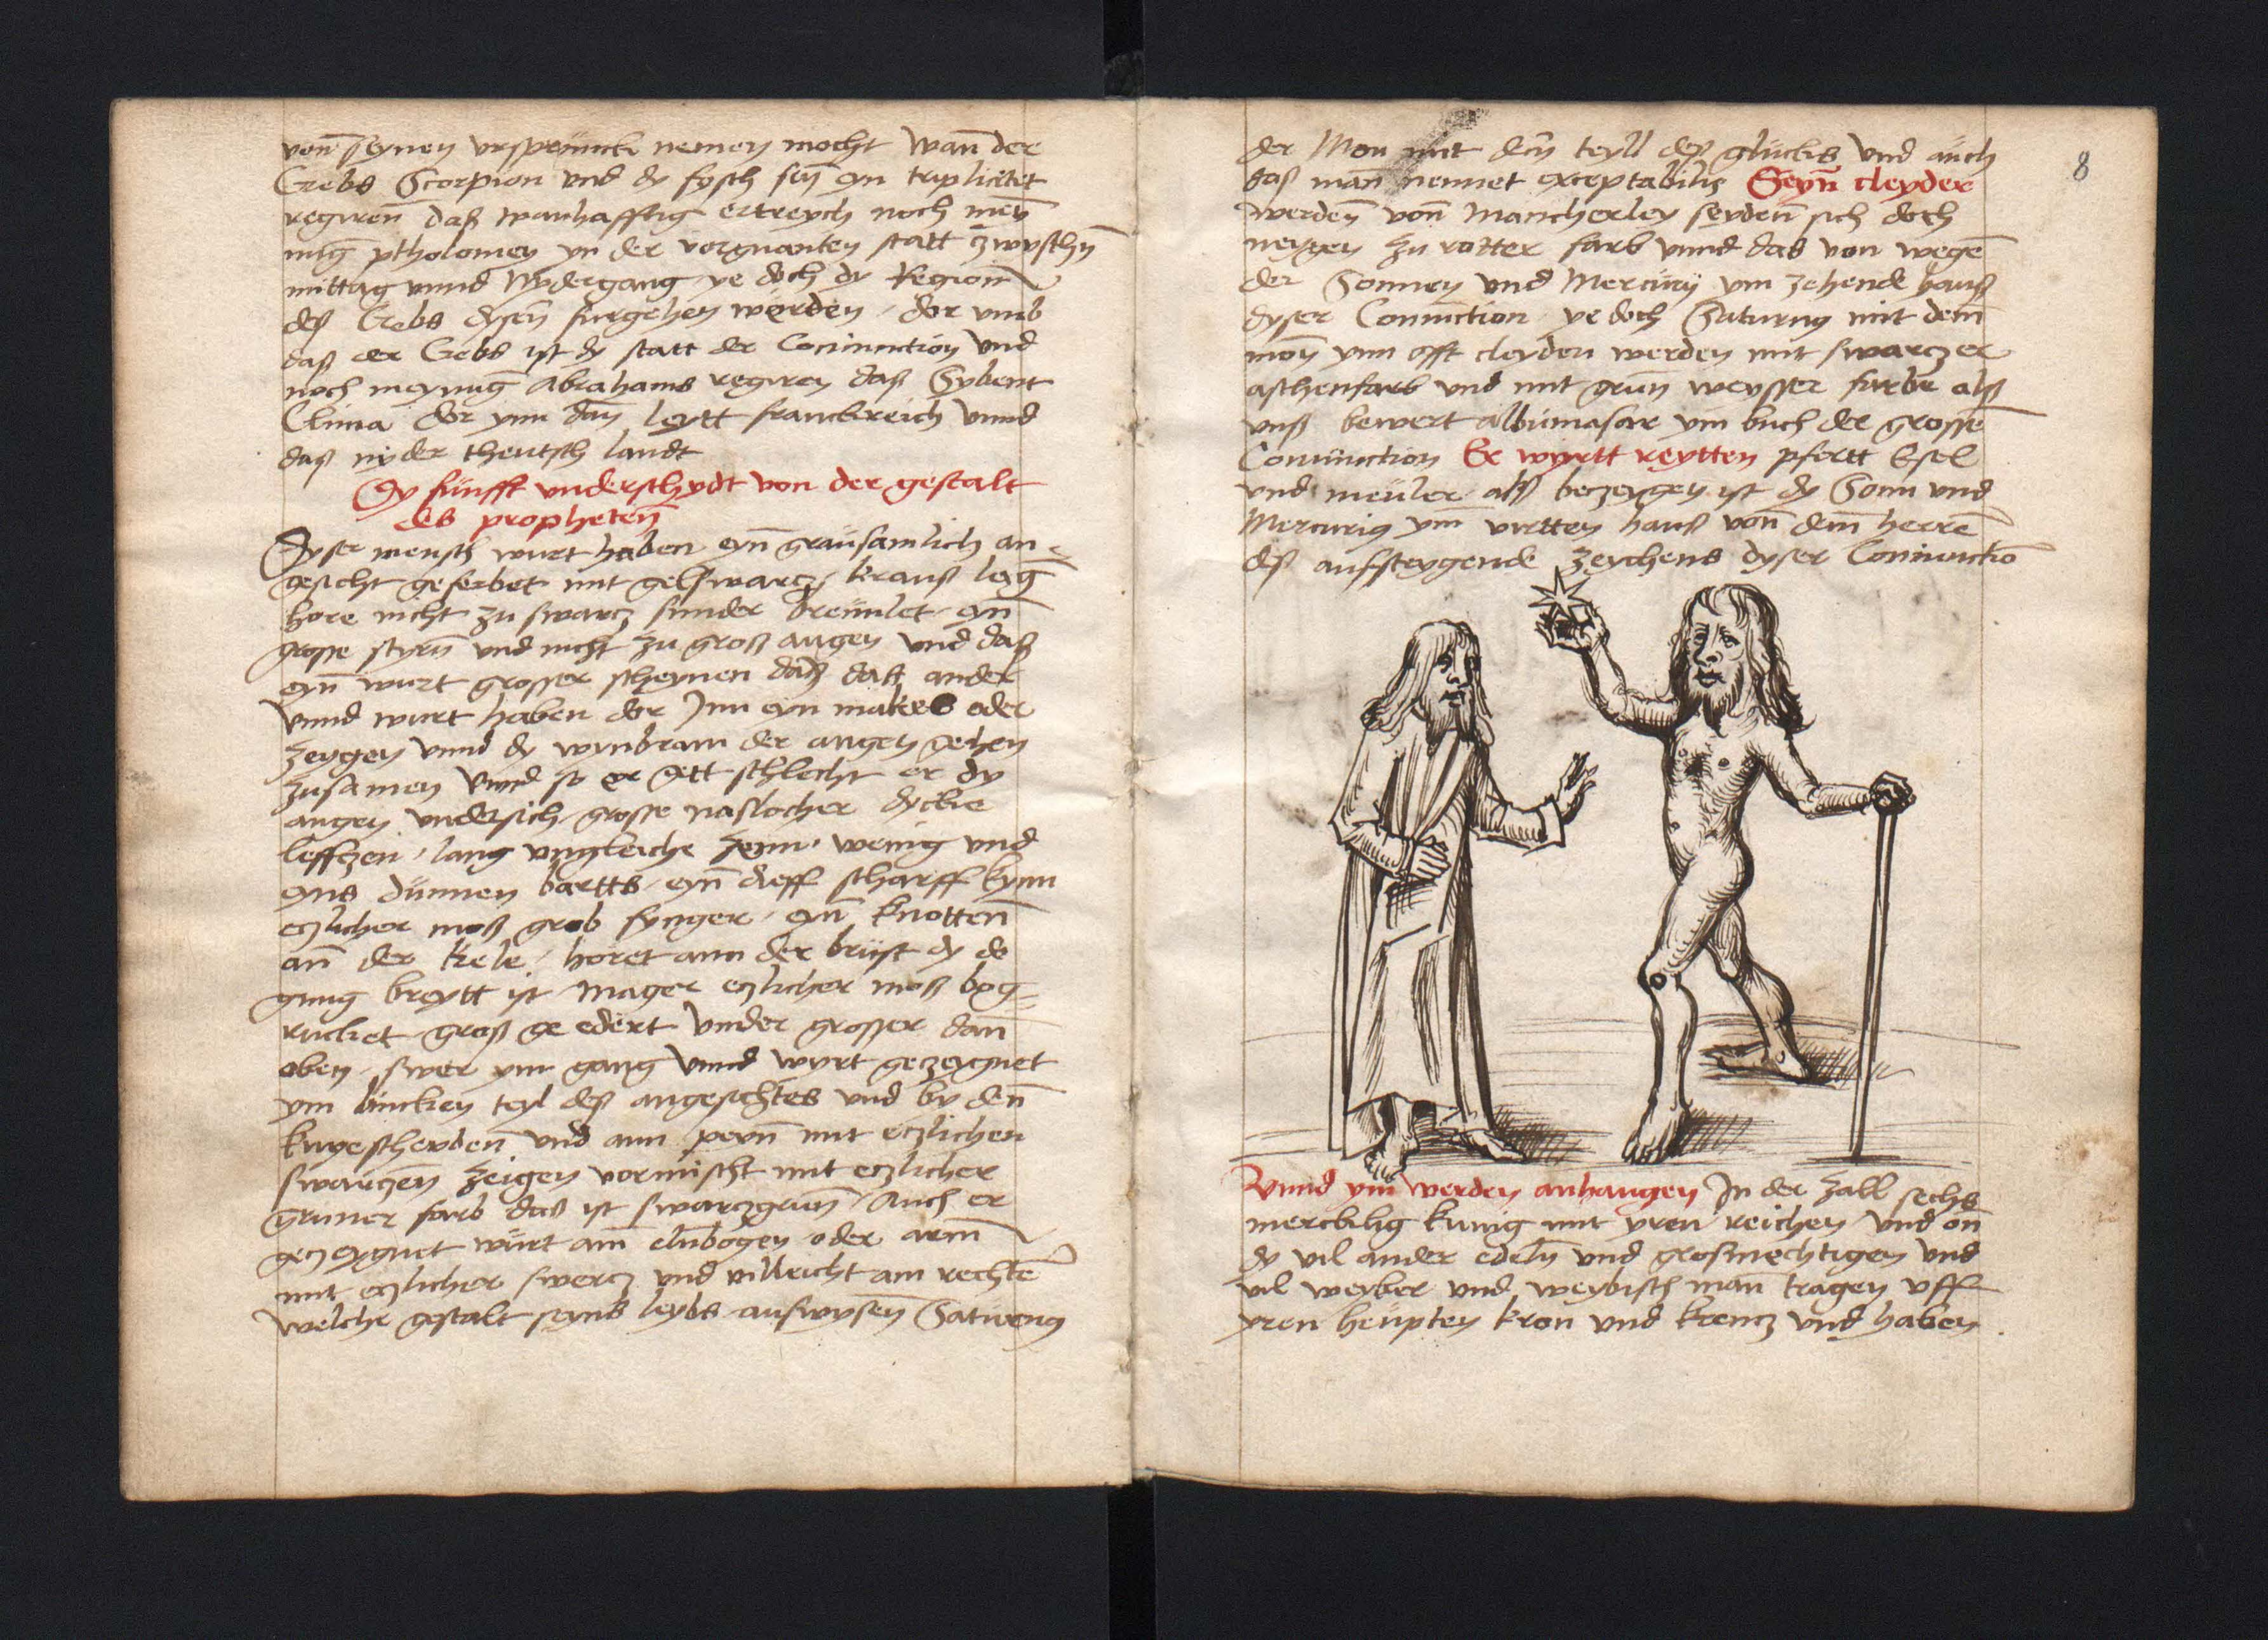 von seynen ursprünck nemen mocht wan̄ der
Crebs Scorpion vnd dy fysch sin̄ eyn triplicitet
regiren̄ daß wanhafftig ertreych noch mey
nūg ptholomey yn der vorgnanten statt zwyschn̄
mittag vnnd Nydergang ye doch dy Region̄
deß Crebs dysen̄ furgehen werden dor vmb
daß der Crebs ist dy statt der Coniunction vnd
noch meynūg Abrahams regiren daß Sybent
Clima dor ynn dan̄ leytt franckreich vnnd
daß nyder theutsch landt
Dy fünfft vnderschydt von der gestalt
des propheten̄
Dyser mensch wurt haben eyn̄ graüsamlich an
gesicht geferbet mit gelswarcz krauß lāg
hore nicht zu swarcz sunder breünlet eyn̄
grosse styrn̄ vnd nicht zu groß augen vnd daß
eyn̄ wurt grosser scheynen dan̄ daß ander
Vnnd wurt haben dor Jnn eyn makes oder
zeygen vnnd dy wynbram der augen gehen
zusamen vnnd so er gett schlecht er dy
augen vndersich grosse naslocher dycke
leffczen lang vngleiche zenn wenig vnd
eyns dünnen bartts eyn̄ dieff scharff kynn
eczlicher moß grob fynger eyn̄ knotten̄
an̄ der kele horet ann der brüst dy do
gnug breytt ist Mager eczlicher moß bog
rucket groß ge edert vnder grosser dan̄
oben swer ym gang vnnd wyrt gezeygnet
ym lincken teyl deß angesichtes vnd by den̄
knyescheyden̄ vnd ann peyn̄ mit eczlichen
swarczen zeigen vormischt mit eczlicher
gruner farb daß ist swarczgrun̄ Auch er
geczeygnet würt am̄ elnbogen oder arm̄
mit eczlicher swercz vnd villeicht am rechtē
welche gestalt seyns leybs außwysen̄ Saturnus
der Mon mit dem̄ teyll deß glücks vnd aüch
daß man̄ nennet exceptabilis Seyn̄ cleyder
werden̄ von̄ mancherley seyden̄ sich doch
neygen zu rotter farb vnnd das von wegē
der Sonnen vnd Mercurÿ ym zehende hauß
dyser Coniunction ye doch Saturnus mit dem̄
mon ynn offt cleyden werden mit swarczer
aschenfarb vnd mit grun̄ weysser farbe alß
vnß bewert albümasar ym buch der grossē
Coniünction Er wyrtt reytten pfertt Esel
vnd meüler alß beczeygen ist dy Sonn vnd
Mercurius ym̄ virtten hauß von̄ dem̄ herrē
deß aufsteygende zeychens dyser Coniunctiō
8
Vnnd ym̄ werden anhangen Jn der zall sechs
mercklig kunig mit yren reichen vnd on̄
dy vil ander edeln̄ vnd grosmechtigen vnd
vil weyber vnd weybisch man̄ tragen vff
yren heüpten kron vnd krencz vnd haben